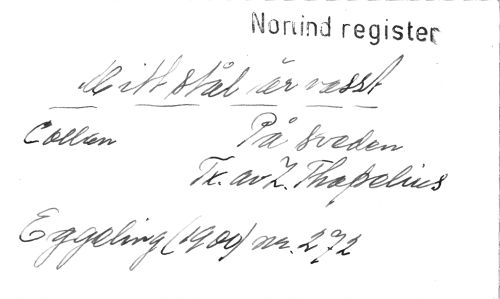 Norlind register
Mitt stål är vasst
Collan På sveden
Tx. av Z. Thopelius
Eggeling (1909) nr. 272